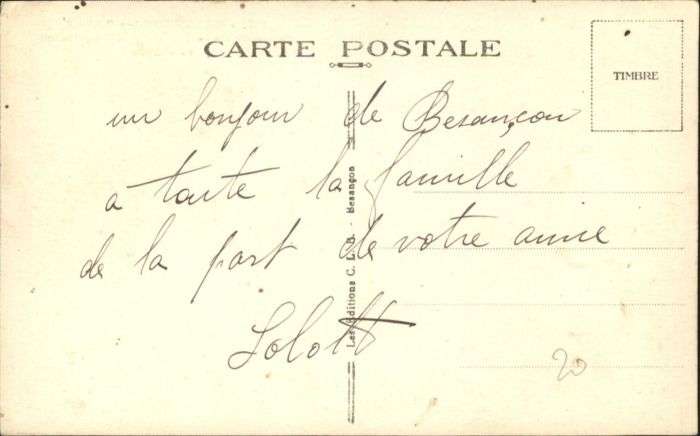 CARTE POSTALE
TIMBRE
un bonjour de Besançon
a toute la famille
de la part de votre amie
Lolott
Les Editions C. L. B. - Besançon
20